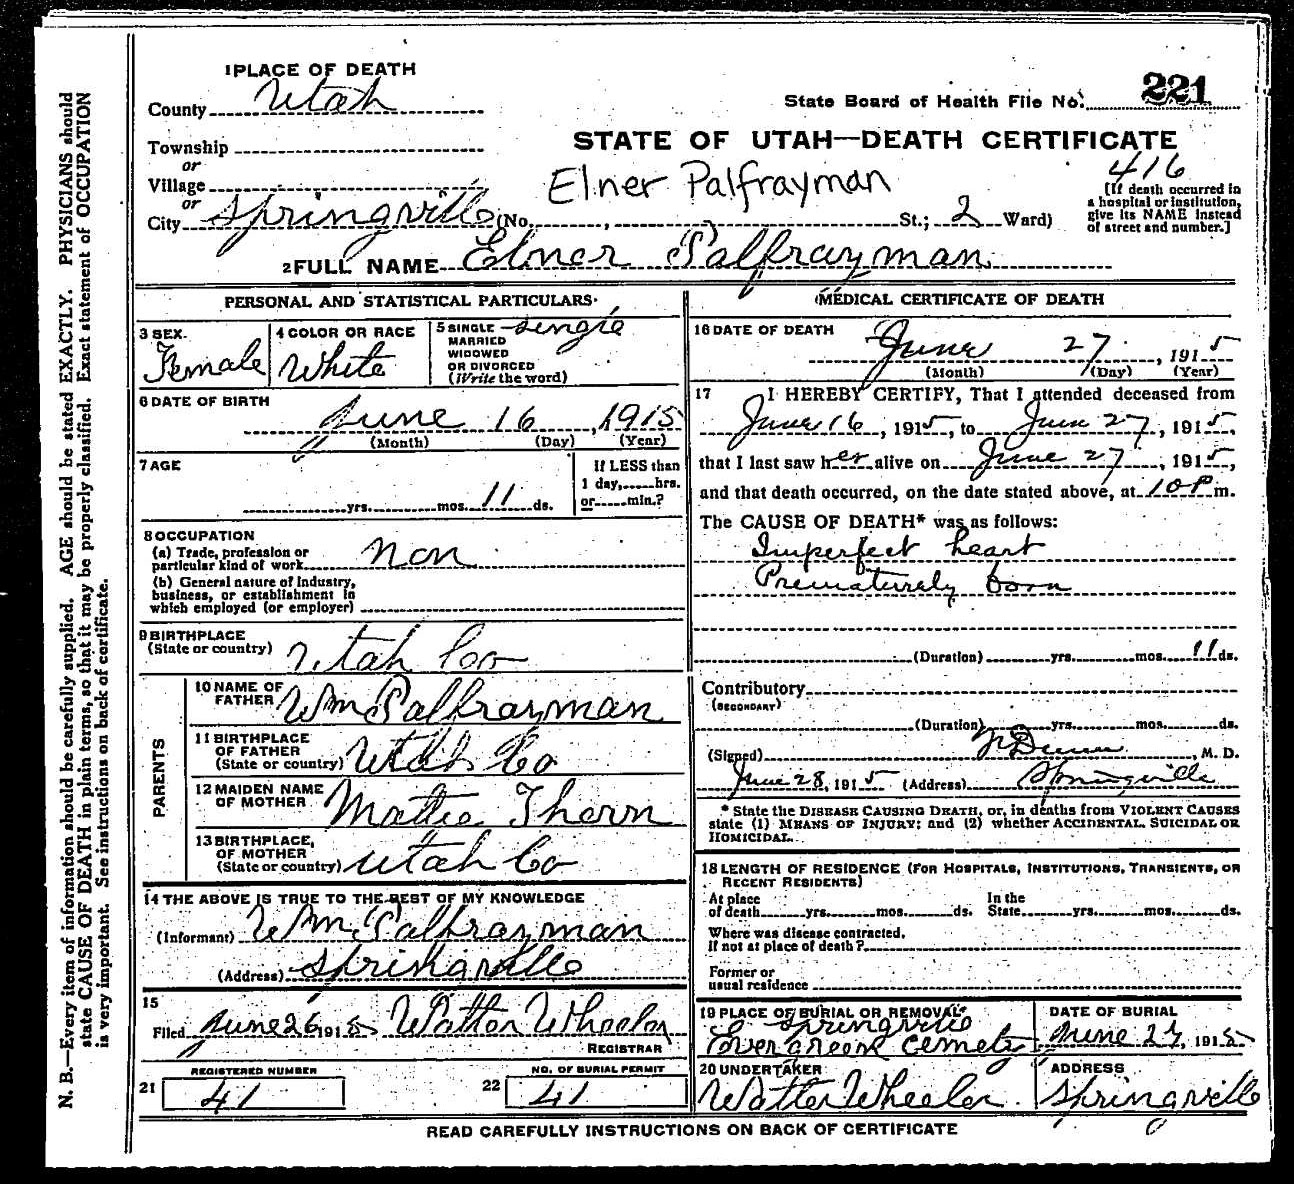 1 PLACE OF DEATH
County Utah
221
State Board of Health File No.
Township
STATE OF UTAH—DEATH CERTIFICATE
or
Village
Elner Palfrayman
416
[If death occurred in
a hospital or institution,
give its NAME instead
of street and number.]
or
City Springville (No. , St.; 2 Ward)
2 FULL NAME Elner Palfrayman
PERSONAL AND STATISTICAL PARTICULARS
3 SEX.
Female
4 COLOR OR RACE
White
5 SINGLE single
MARRIED
WIDOWED
OR DIVORCED
(Write the word)
6 DATE OF BIRTH
June 16, 1915
(Month) (Day) (Year)
7 AGE
yrs. mos. 11 ds.
If LESS than
1 day, hrs.
or min.?
8 OCCUPATION
(a) Trade, profession or
particular kind of work non
(b) General nature of Industry,
business, or establishment in
which employed (or employer)
9 BIRTHPLACE
(State or country) Utah Co
PARENTS
10 NAME OF
FATHER Wm Palfrayman
11 BIRTHPLACE
OF FATHER
(State or country) Utah Co
12 MAIDEN NAME
OF MOTHER Mattie Thorn
13 BIRTHPLACE,
OF MOTHER
(State or country) Utah Co
14 THE ABOVE IS TRUE TO THE BEST OF MY KNOWLEDGE
(Informant) Wm Palfrayman
(Address) Springville
15
Filed June 26 1915 Watter Wheeler
REGISTRAR
REGISTERED NUMBER
21 41
NO. OF BURIAL PERMIT
22 41
MEDICAL CERTIFICATE OF DEATH
16 DATE OF DEATH
June 27, 1915
(Month) (Day) (Year)
17 I HEREBY CERTIFY, That I attended deceased from
June 16, 1915, to June 27, 1915,
that I last saw her alive on June 27, 1915,
and that death occurred, on the date stated above, at 10 P m.
The CAUSE OF DEATH* was as follows:
Imperfect heart
Prematurely born
(Duration) yrs. mos. 11 ds.
Contributory
(SECONDARY)
(Duration) yrs. mos. ds.
(Signed) Dunn, M. D.
June 28, 1915 (Address) Springville
* State the DISEASE CAUSING DEATH, or, in deaths from VIOLENT CAUSES
state (1) MEANS OF INJURY; and (2) whether ACCIDENTAL, SUICIDAL OR
HOMICIDAL.
18 LENGTH OF RESIDENCE (FOR HOSPITALS, INSTITUTIONS, TRANSIENTS, OR
RECENT RESIDENTS)
At place
of death yrs. mos. ds.
In the
State yrs. mos. ds.
Where was disease contracted,
if not at place of death?
Former or
usual residence
19 PLACE OF BURIAL OR REMOVAL
Springville
Evergreen Cemety
DATE OF BURIAL
June 27, 1915
20 UNDERTAKER
Watter Wheeler
ADDRESS
Springville
READ CAREFULLY INSTRUCTIONS ON BACK OF CERTIFICATE
N. B.—Every item of information should be carefully supplied. AGE should be stated EXACTLY. PHYSICIANS should
state CAUSE OF DEATH in plain terms, so that it may be properly classified. Exact statement of OCCUPATION
is very important. See instructions on back of certificate.